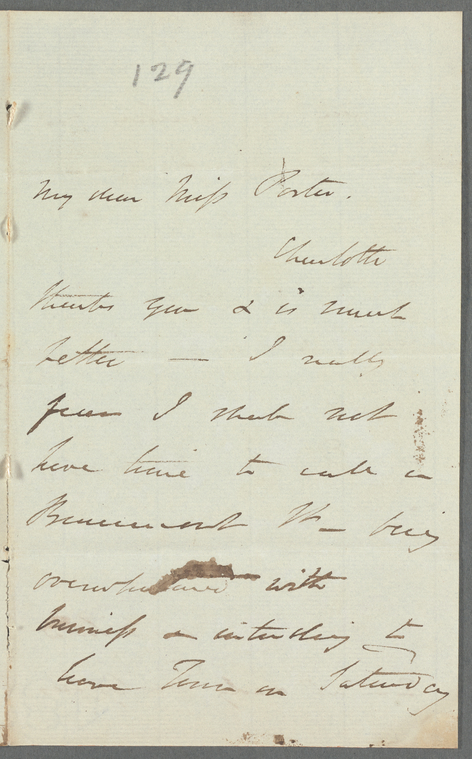 129
My dear Miss Porter.
Charlotte
thanks you & is much
better — I really
fear I shall not
have time to call in
Beaumont St — being
overwhelmed with
business & intending to
leave Town on Saturday